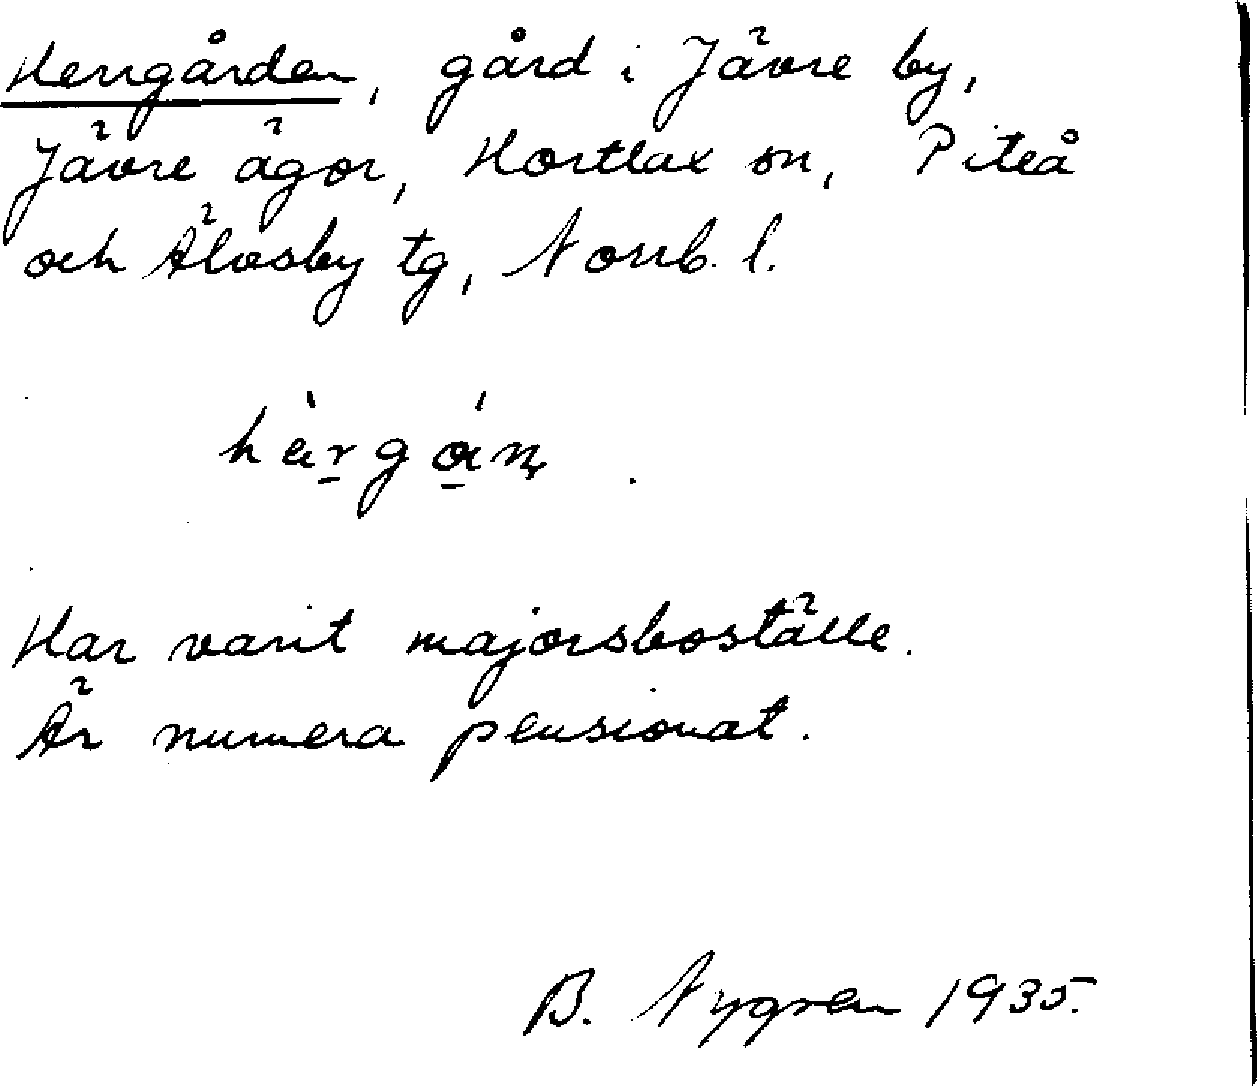 Herrgården, gård i Jävre by,
Jävre ägor, Hortlax sn, Piteå
och Älvsby tg, Norrb. l.
hä̀rgán
Har varit majorsboställe.
Är numera pensionat.
B. Nygren 1935.